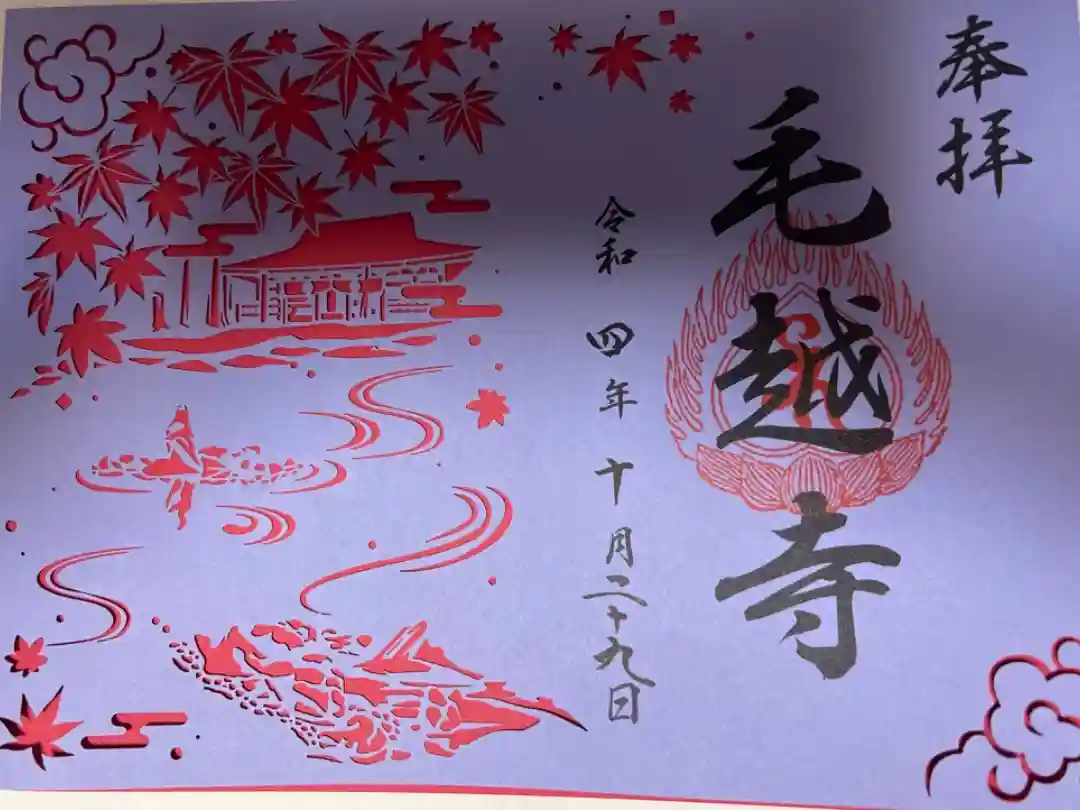 奉拝
毛越寺
令和四年十月二十九日